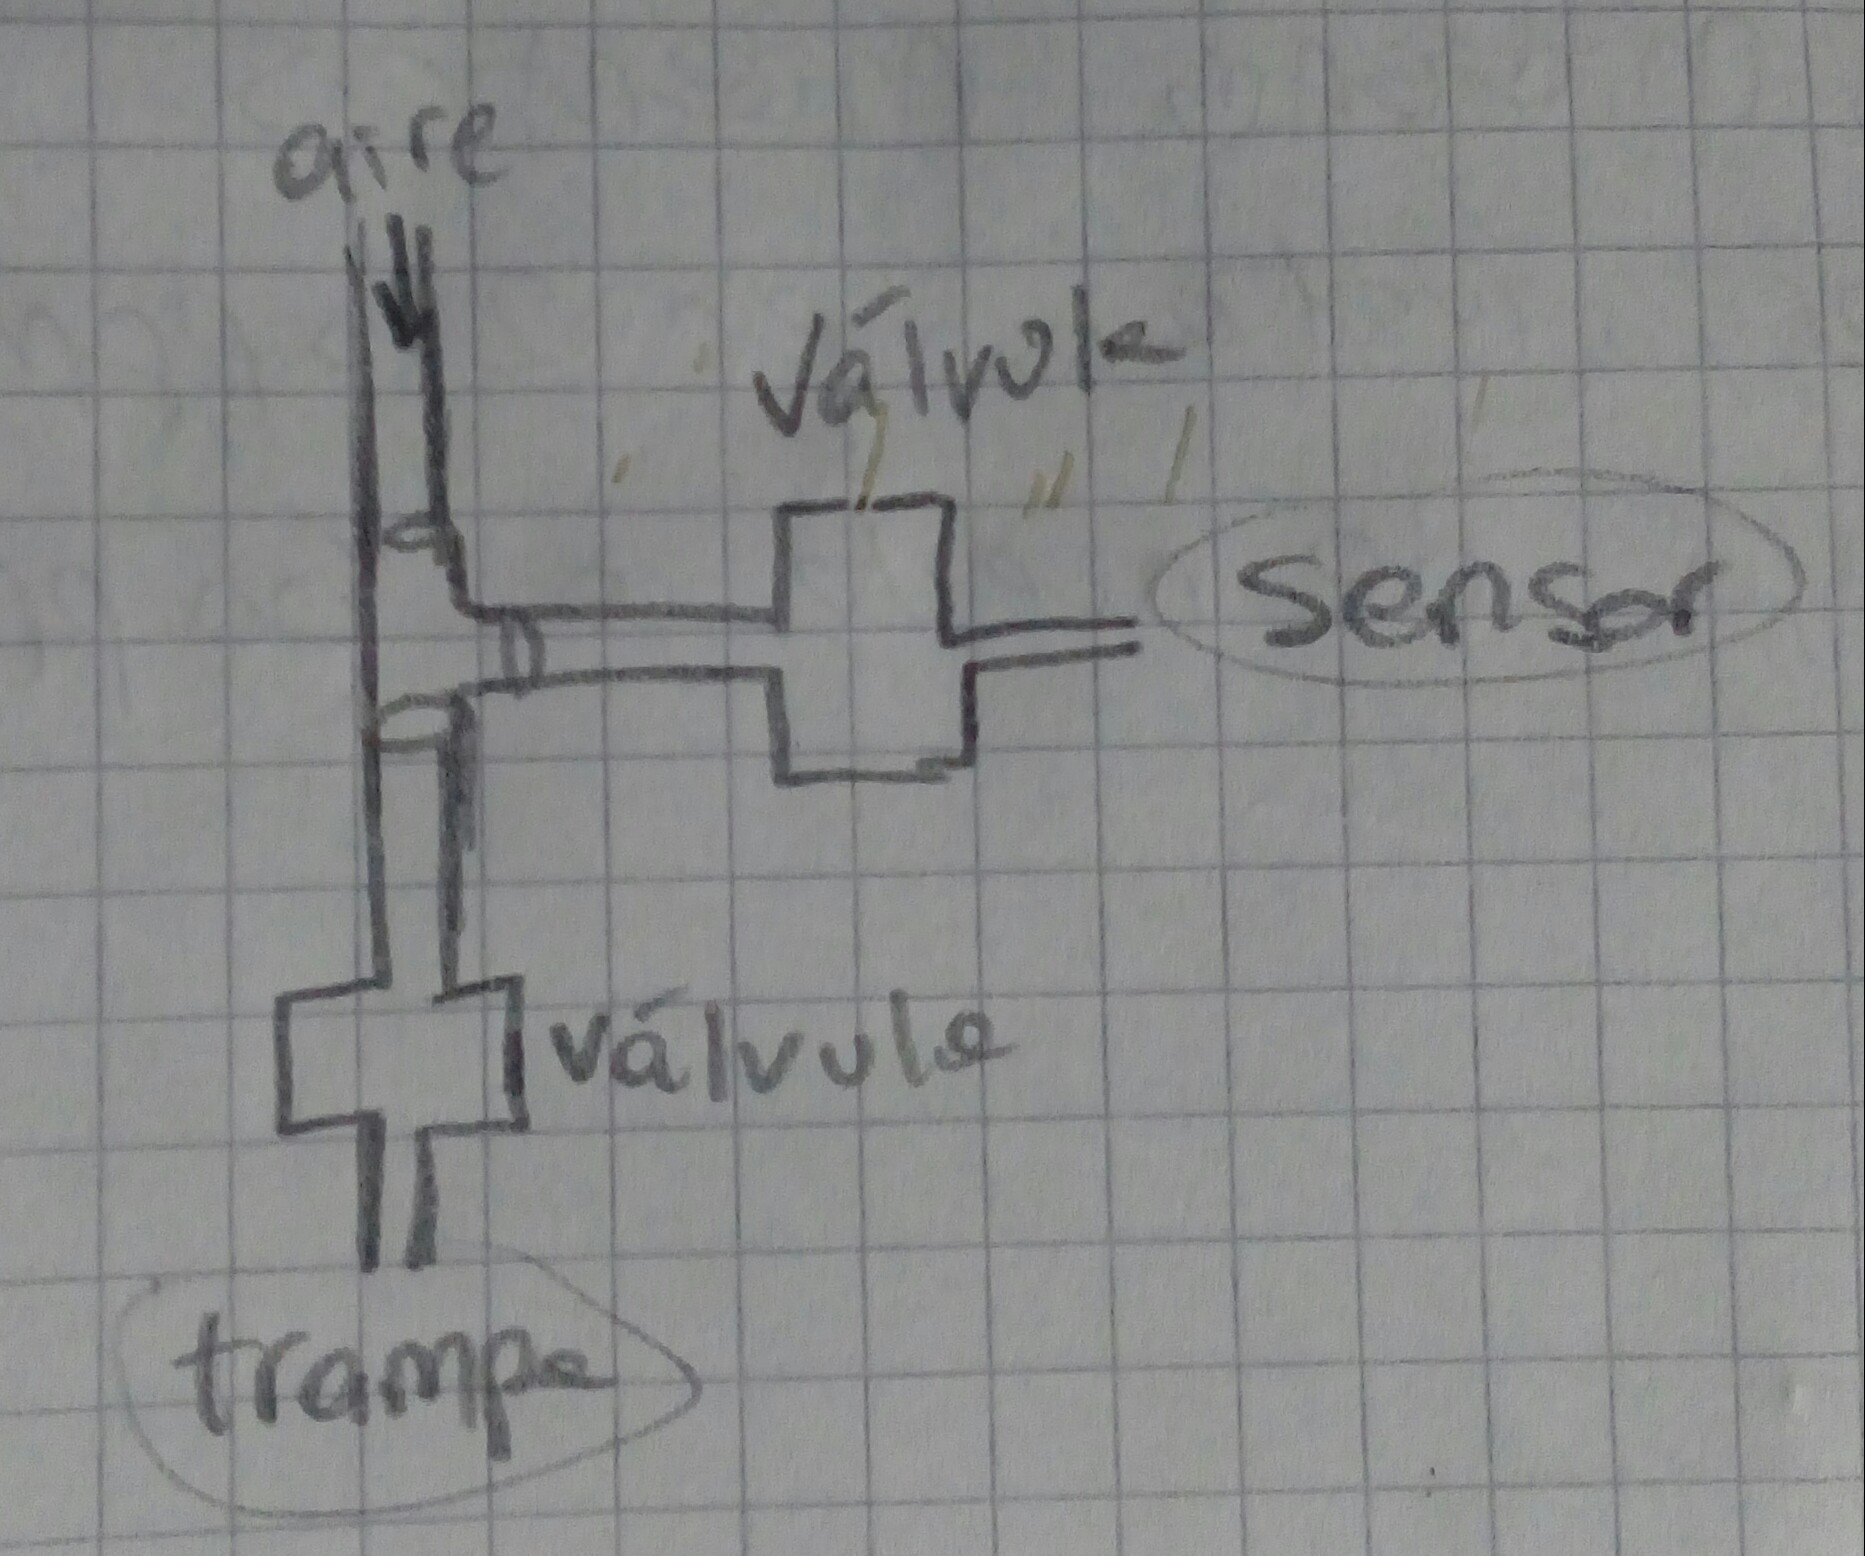 aire
válvula
sensor
válvula
trampa